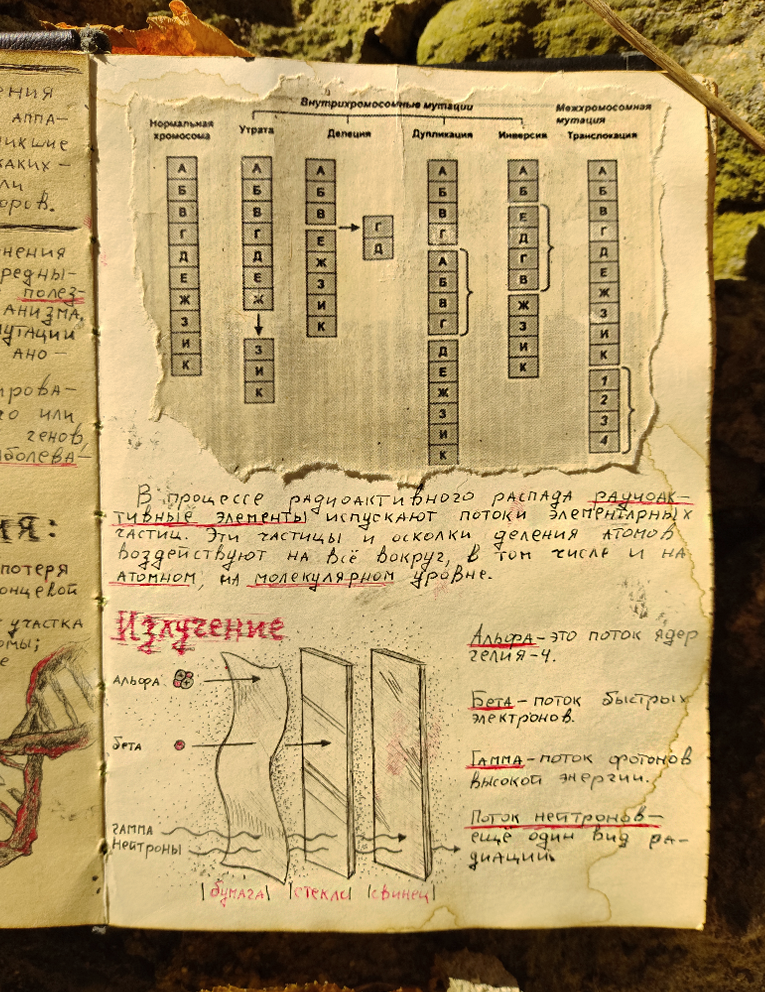 ения
аппа-
никшие
каких-
ли
оров.
нения
редны-
полез-
анизма.
мутации
ано-
ирова-
го или
генов,
аболева-
ия:
потеря
онцевой
участка
омы;
е
Внутрихромосомные мутации
Межхромосомная
мутация
Нормальная
хромосома
Утрата
Делеция
Дупликация
Инверсия
Транслокация
А
Б
В
Г
Д
Е
Ж
З
И
К
А
Б
В
Г
Д
Е
Ж
З
И
К
А
Б
В
Е
Ж
З
И
К
Г
Д
А
Б
В
Г
А
Б
В
Г
Д
Е
Ж
З
И
К
А
Б
Е
Д
Г
В
Ж
З
И
К
А
Б
В
Г
Д
Е
Ж
З
И
К
1
2
3
4
В процессе радиоактивного распада радиоак-
тивные элементы испускают потоки элементарных
частиц. Эти частицы и осколки деления атомов
воздействуют на всё вокруг, в том числе и на
атомном, на молекулярном уровне.
Излучение
Альфа
Бета
Гамма
Нейтроны
|бумага| |стекло| |свинец|
Альфа-это поток ядер
гелия-4.
Бета-поток быстрых
электронов.
Гамма-поток фотонов
высокой энергии.
Поток нейтронов-
еще один вид ра-
диации.